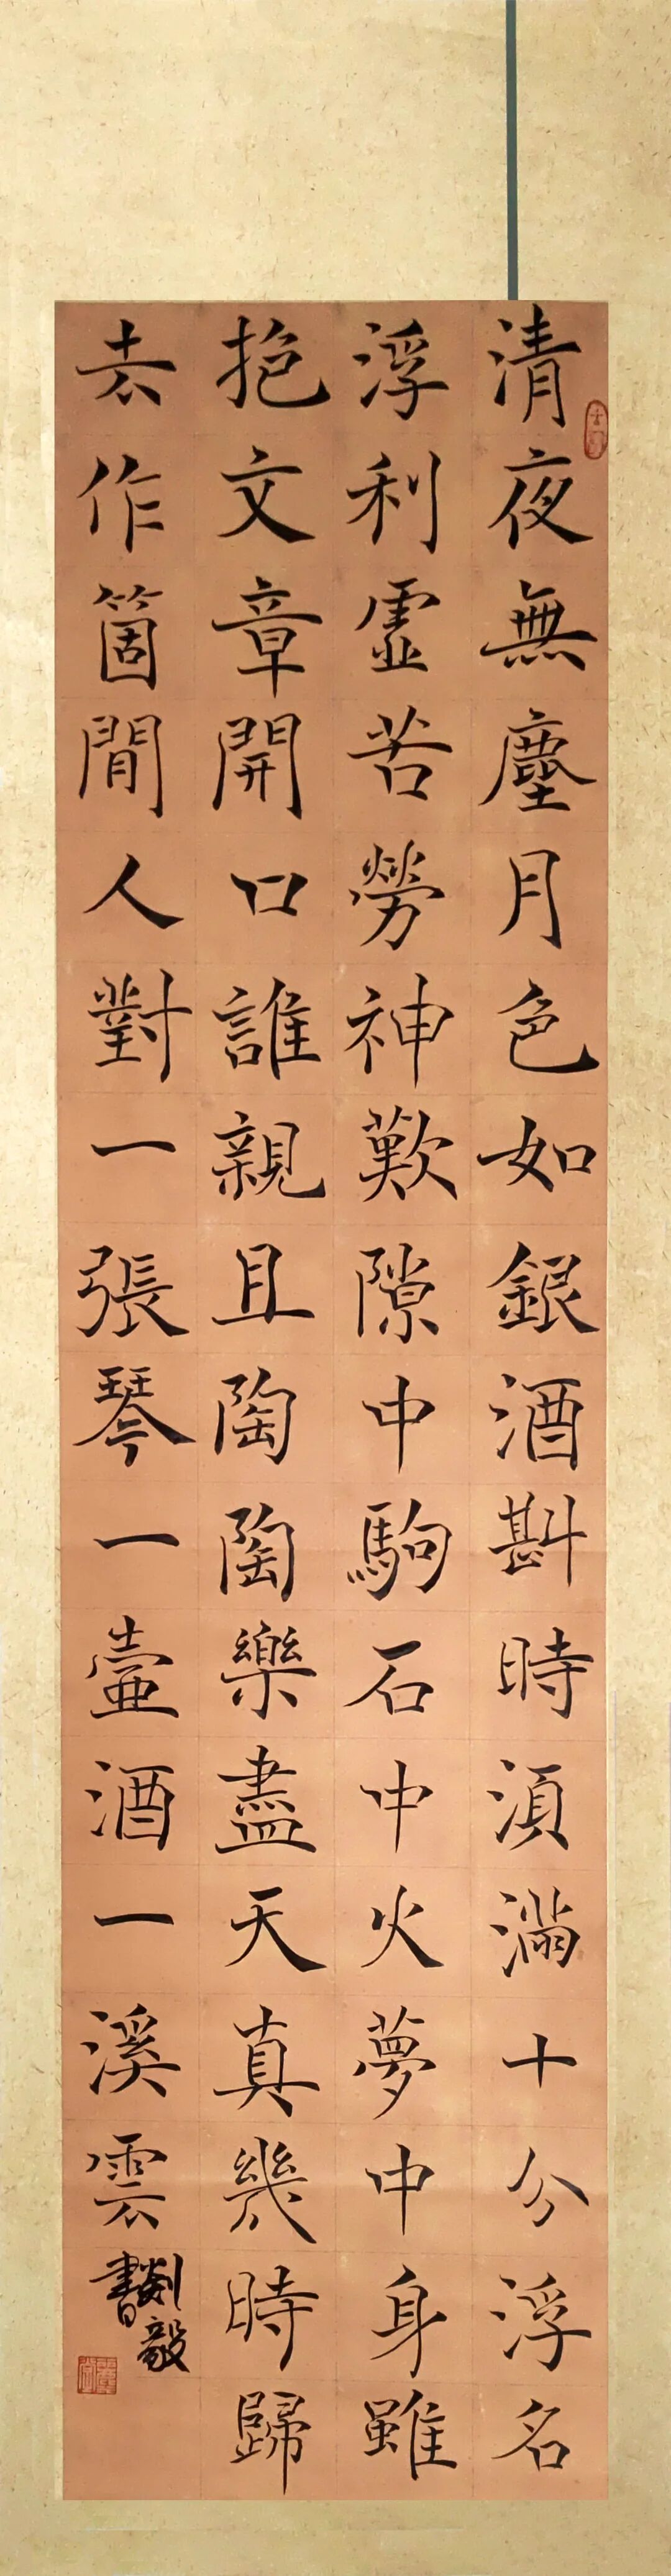 清夜無塵月色如銀酒斟時湏滿十分浮名
浮利虛苦勞神歎隙中駒石中火夢中身雖
抱文章開口誰親且陶陶樂盡天真幾時歸
去作箇閒人對一張琴一壺酒一溪雲
劉毅
書